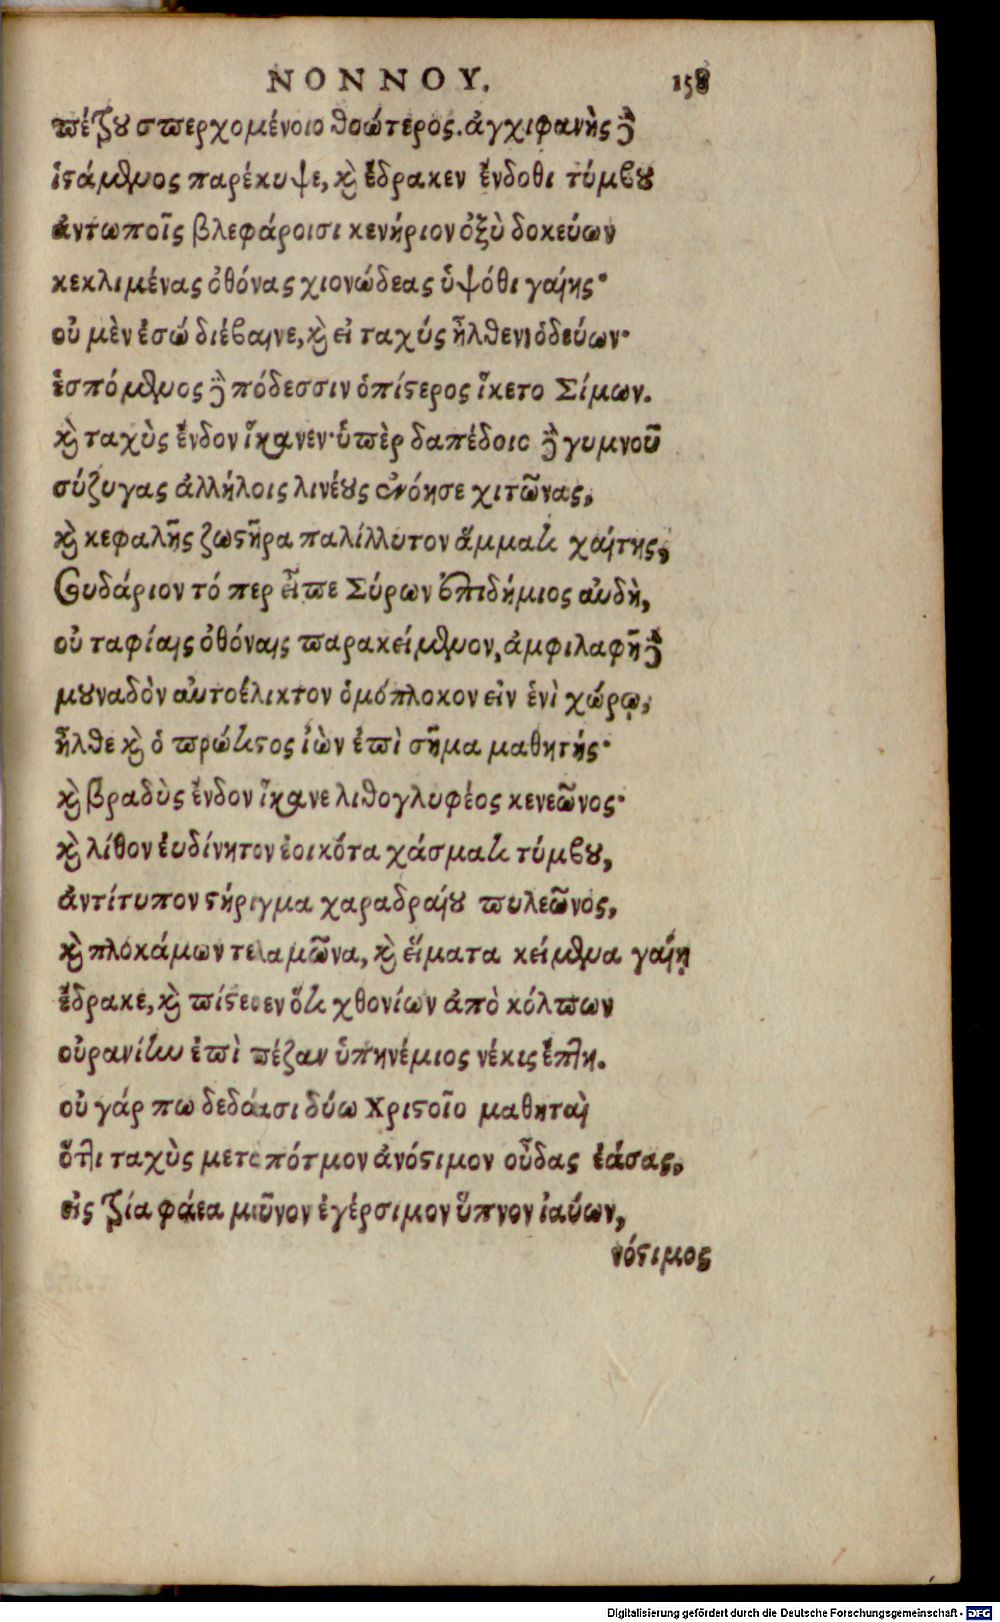 ΝΟΝΝΟΥ. 158
πέζου σπερχομένοιο θοώτερος. ἀγχιφανὴς δὲ
ἱστάμενος παρέκυψε, καὶ ἔδρακεν ἔνδοθι τύμβου
ἀντωποῖς βλεφάροισι κενήριον ὀξὺ δοκεύων
κεκλιμένας ὀθόνας χιονώδεας ὑψόθι γαίης·
οὐ μὲν ἐσώ διέβαινε, καὶ εἰ ταχύς ἦλθεν ὁδεύων·
ἑσπόμενος δὲ πόδεσσιν ὀπίστερος ἵκετο Σίμων.
καὶ ταχὺς ἔνδον ἵκανεν· ὑπὲρ δαπέδοιο δὲ γυμνοῦ
σύζυγας ἀλλήλοις λινέους ἐνόησε χιτῶνας,
καὶ κεφαλῆς ζωστῆρα παλίλλυτον ἅμματι χαίτης,
σουδάριον τό περ εἶπε Σύρων ἐπιδήμιος αὐδὴ,
οὐ ταφίαις ὀθόναις παρακείμενον, ἀμφιλαφῆ δὲ
μουναδὸν αὐτοέλικτον ὁμόπλοκον εἰν ἑνὶ χώρῳ,
ἦλθε καὶ ὁ πρώτιστος ἰὼν ἐπὶ σῆμα μαθητής·
καὶ βραδὺς ἔνδον ἵκανε λιθογλυφέος κενεῶνος·
καὶ λίθον ἐυδίνητον ἐοικότα χάσματι τύμβου,
ἀντίτυπον στήριγμα χαραδραίου πυλεῶνος,
καὶ πλοκάμων τελαμῶνα, καὶ εἵματα κείμενα γαίῃ
ἔδρακε, καὶ πίστευεν ὅτι χθονίων ἀπὸ κόλπων
οὐρανίην ἐπὶ πέζαν ὑπηνέμιος νέκις ἔπτη.
οὐ γάρ πω δεδάασι δύω Χριστοῖο μαθηταὶ
ὅττι ταχὺς μετὰ πότμον ἀνόστιμον οὖδας ἐάσας,
εἰς ζία φάεα μοῦνον ἐγέρσιμον ὕπνον ἰαύων,
νόστιμος
Digitalisierung gefördert durch die Deutsche Forschungsgemeinschaft - DFG